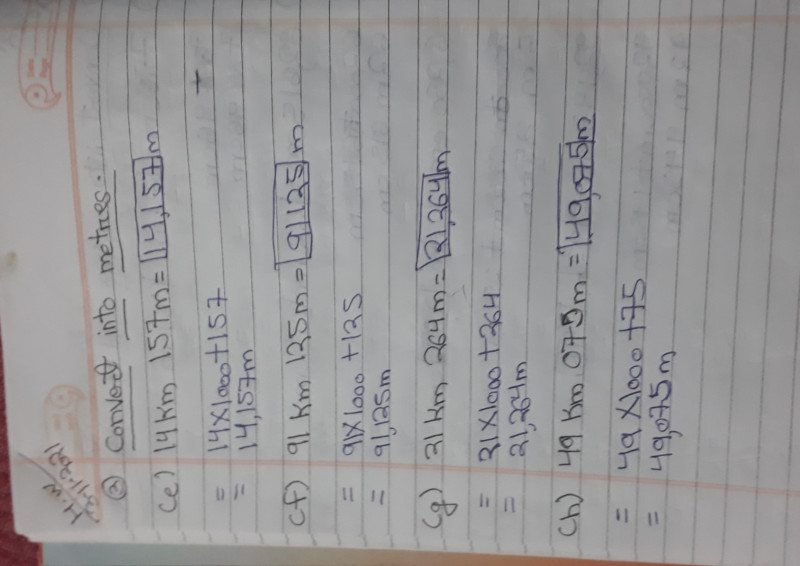 H.W
③ Convert into metres.
(e) 14 Km 157m = 14,157m
= 14X1000+157
= 14,157m
(f) 91 Km 125m = 91125 m
= 91X1000 +125
= 91,125m
(g) 21 Km 264m = 21,264m
= 21X1000+264
= 21,264m
(h) 49 Km 075m = 49,075m
= 49 X1000 +75
= 49,075m